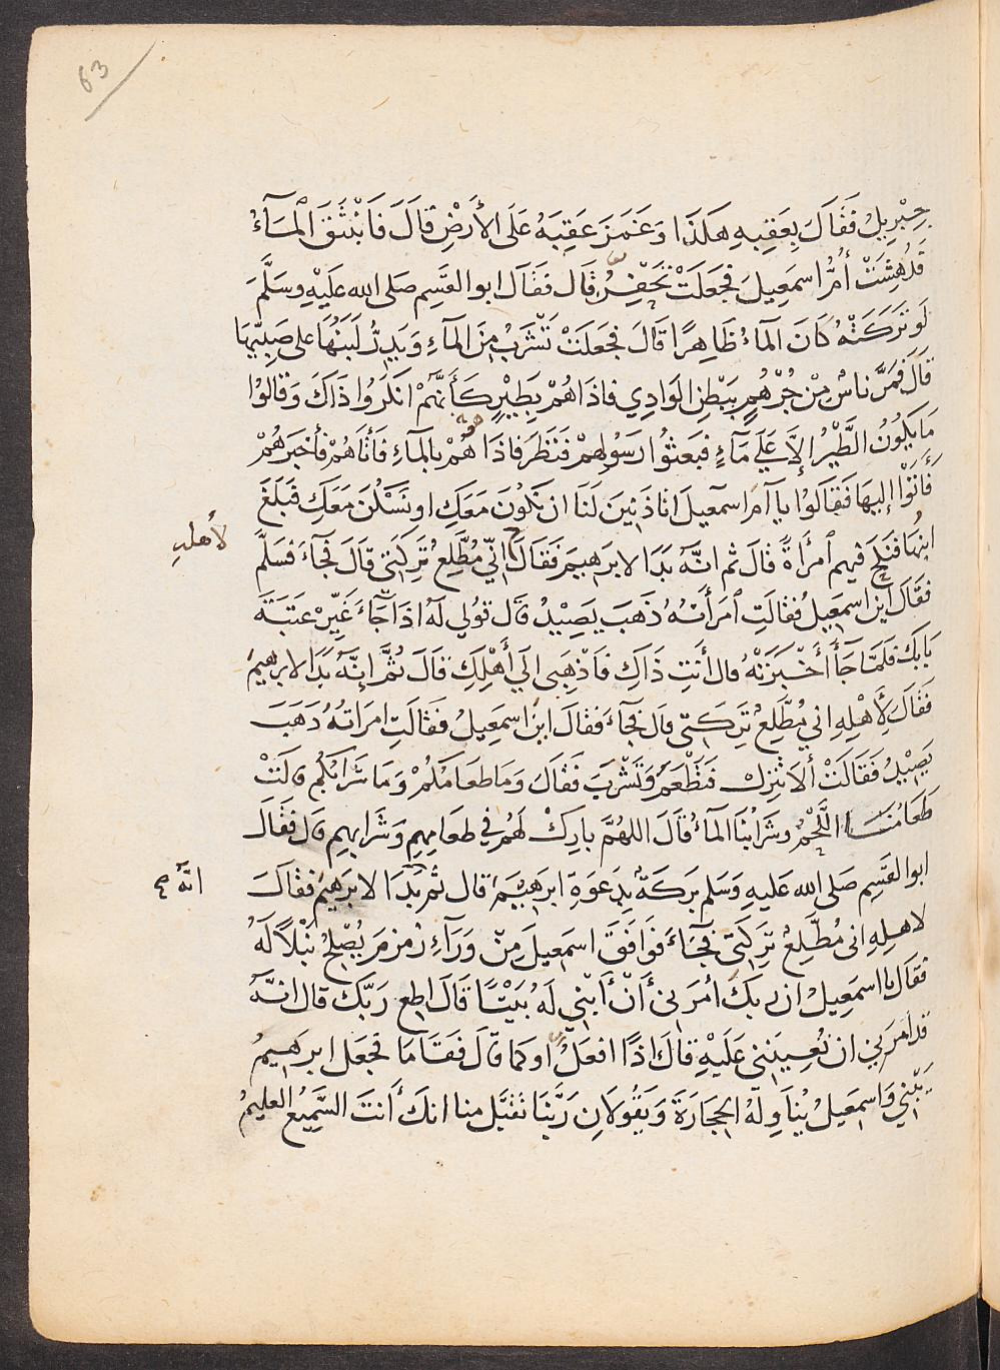 63
جِبْرِيلُ فَقَالَ بِعَقِبِهِ هَكَذَا وَغَمَزَ عَقِبَهُ عَلَى الأَرْضِ قَالَ فَانْبَثَقَ الْمَآءُ
فَدُهِشَتْ أُمُّ اسمَعِيلَ فَجَعَلَتْ تَحْفِرُ قَال فَقَالَ ابو القَسِم صَلى الله عَلَيْهِ وسَلَّمَ
لَو تَرَكَتْهُ كَانَ المآءُ ظَاهِرًا قَالَ فجَعَلَتْ تَشْرَبُ مِنَ المآءِ وَيَدِرُّ لَبَنُهَا عَلى صَبِيِّهَا
قَالَ فَمَرَّ ناسٌ مِنْ جُرْهُمٍ بِبَطْنِ الوَادِي فاذَا هُمْ بِطَيْرٍ كَأَنَّهُمْ انكَرُوا ذَاكَ وَقَالُوا
مَا يَكُونُ الطَّيْرُ إلاَّ عَلَى مَآءٍ فبَعَثُوا رَسُولهمْ فَنَظَرَ فاذَا هُمْ بالمآءِ فَأَتَاهُمْ فَأَخبَرَهُمْ
فَأَتَوْا إليهَا فَقَالُوا يآ أمَّ اسمعيلَ اتاذَنِينَ لَنَا ان نَكُونَ مَعَكِ او نَسْكُنَ مَعَكِ فَبَلَغَ
ابنُهَا فنَكَحَ فِيهم امرَأَةً قالَ ثم انَّهُ بَدَا لابرَهِيمَ فَقَالَ إنّي مُطَّلِعٌ تَرِكَتِى قَالَ فجَآءَ فسَلَّمَ
لأهلهِ
فقَالَ أينَ اسمَعِيلُ فقالَتِ امرَأَتُهُ ذَهَبَ يَصِيْدُ قَالَ قُولي لَهُ اذَا جَآءَ غَيِّرْ عَتَبَةَ
بَابِكَ فلَمَّا جَآءَ أَخْبَرَتْهُ قال أَنتِ ذَاكِ فَاذْهَبِى الَى أَهْلِكِ قَالَ ثُمَّ إنَّهُ بَدَا لابرهيمَ
فَقَالَ لأَهْلِهِ اني مُطَّلِعٌ تَرِكَتِى قال فجآءَ فقَالَ اينَ اسمَعِيلُ فقَالَتِ امرَاتُهُ ذَهَبَ
يَصِيْدُ فَقَالَتْ أَلاَ تَنزِلُ فتَطْعَمَ وَتَشْرَبَ فَقَالَ وَمَا طعَامكُمْ وَمَا شَرَابُكُم قالَتْ
طَعَامُنَا اللَّحْمُ وشَرَابُنَا المآءُ قَالَ اللهُمَّ بارِكْ لَهُم في طعَامِهِم وَشَرَابِهِم قال فقَالَ
ابو القَسِم صَلى الله عَليهِ وَسَلم بَرَكَةٌ بِدَعوَةِ ابرَهِيْمَ قال ثم بَدَا لابرَهِيْمَ فقَالَ
انَّهُ صح
لاهلِهِ انى مُطَّلِعٌ تَرِكَتِى فجَآءَ فوَافَقَ اسمَعِيلَ مِنْ وَرَآءِ زمزمَ يُصْلِحُ نَبْلاً لَهُ
فَقَالَ يا اسمَعِيلُ ان ربكَ أمَرَني أَنْ أَبْنِي لَهُ بَيْتًا قَالَ اطِع رَبَّكَ قال انَّهُ
قد امَرَنِي ان تُعِيْنَنِي عَلَيْهِ قالَ اذًا افعَلُ او كما قال فَقَامَا فجَعَل ابرَهِيمُ
يَبْنِي وَاسمَعِيلُ يُنَاوِلُهُ الحِجَارَةَ وَيَقُولانِ رَبَّنَا تقَبَّل منا انكَ أَنتَ السَّمِيعُ العليمُ